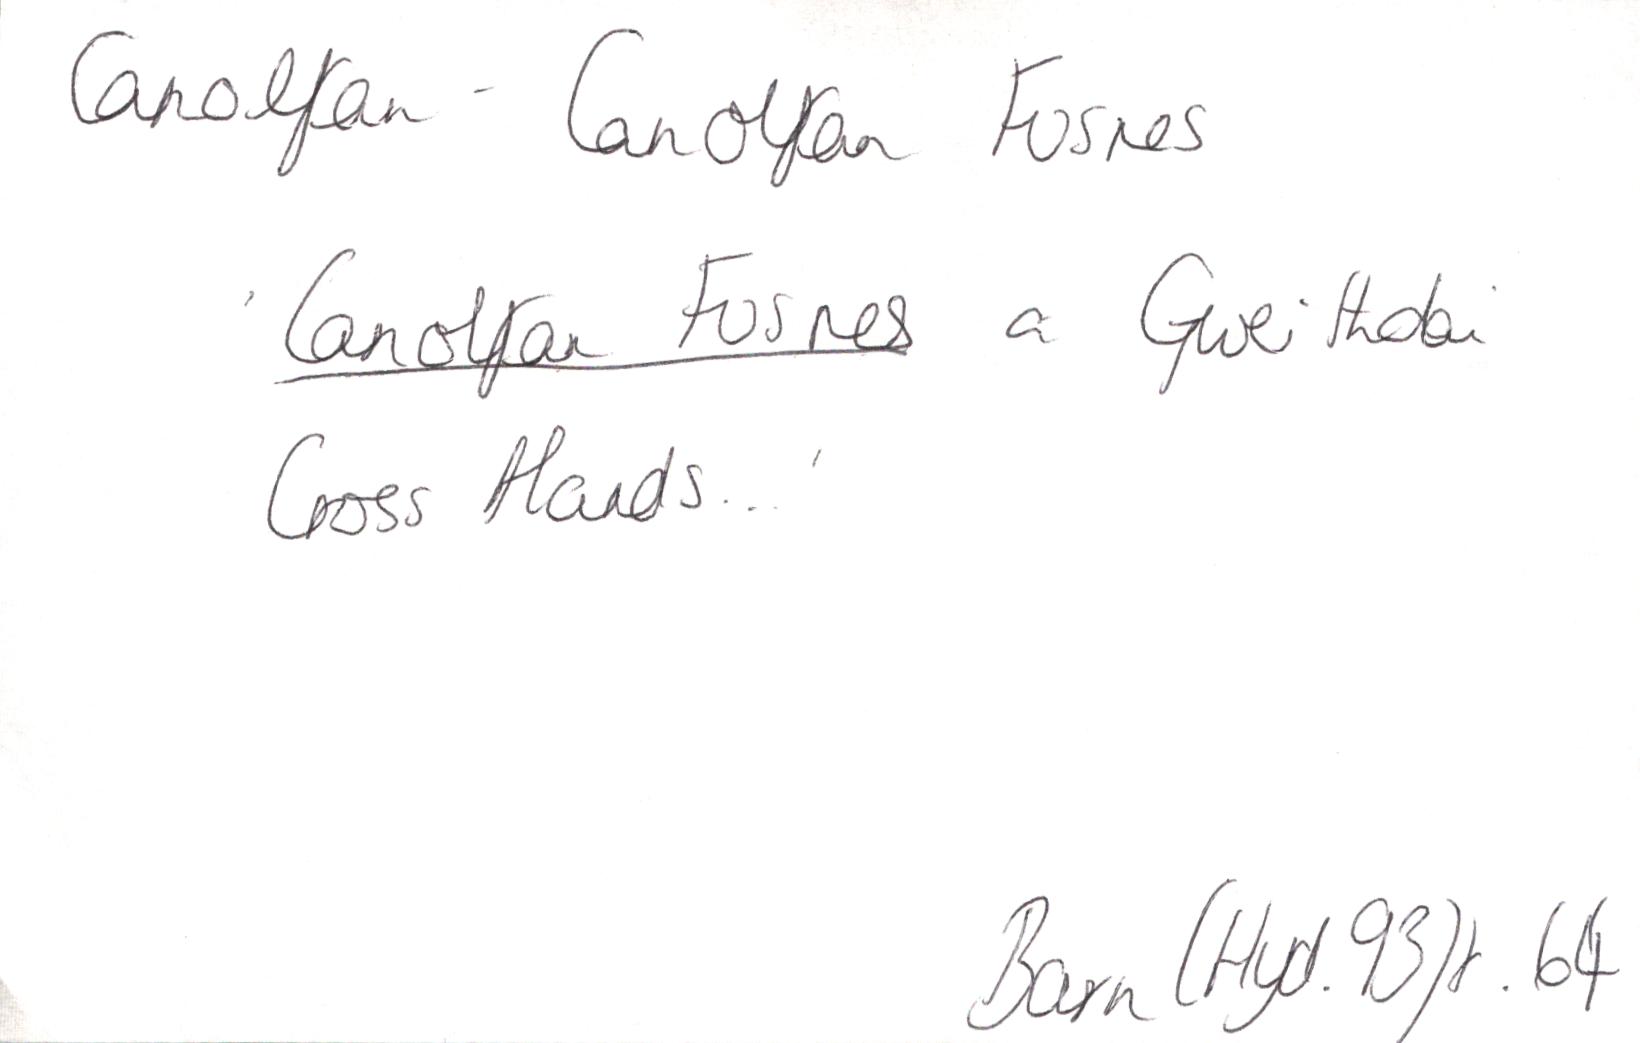 Canolfan - Canolfan Fusnes
'Canolfan Fusnes a Gweithdai
Cross Hands...'
Barn (Hyd. 93) t. 64